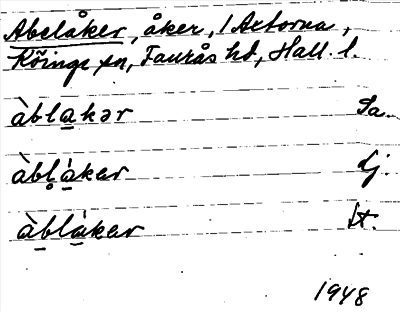 Abelåker, åker, 1 Axtorna,
Köinge sn, Faurås hd, Hall. l.
àblakər Sa.
àblàkar Lj.
àblàkar St.
1948